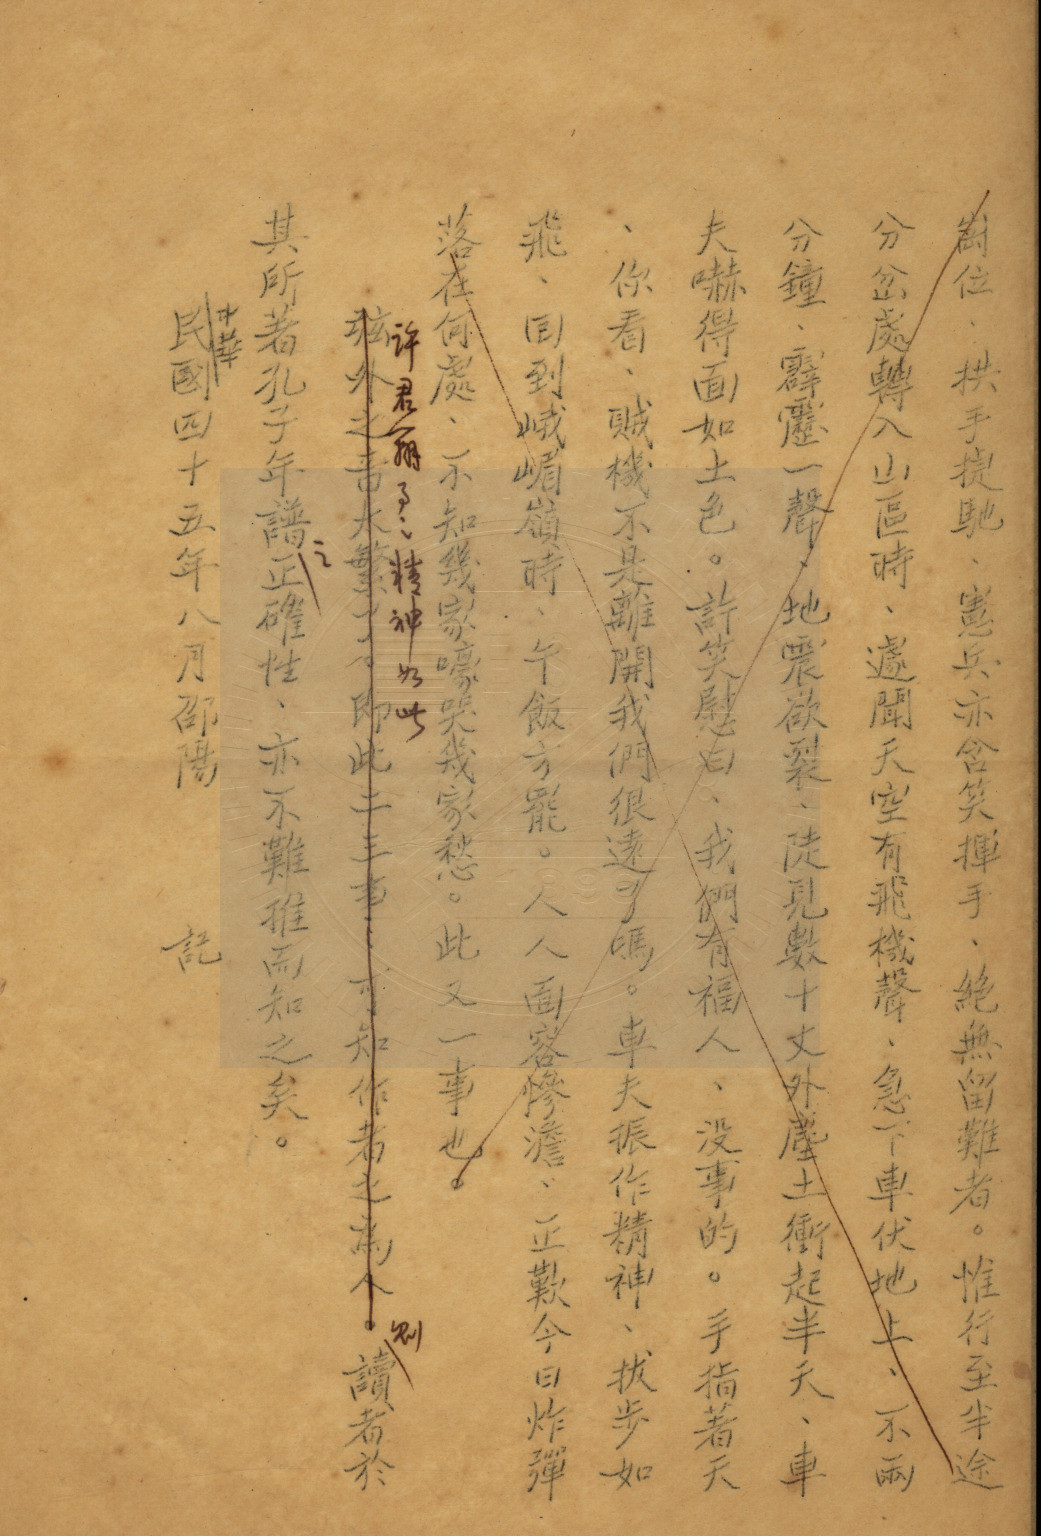 崗位、拱手提馳、憲兵亦含笑揮手、絕無留難者。惟行至半途
分岔處轉入山區時、遽聞天空有飛機聲、急下車伏地上、不兩
分鐘、霹靂一聲、地震欲裂、陡見數十丈外塵土衝起半天、車
夫嚇得面如土色。許笑慰曰、我們有福人、沒事的。手指著天
、你看、賊機不是離開我們很遠了嗎。車夫振作精神、拔步如
飛、回到峨嵋嶺時、午飯方罷。人人面容慘澹、正歎今日炸彈
落在何處、不知幾家嚎哭幾家愁。此又一事也。
許君辦事之精神如此
弦外之音水繁不即此二三事可知作者之為人。讀者於
則
其所著孔子年譜正確性、亦不難推而知之矣。
之
中華
民國四十五年八月邵陽 記